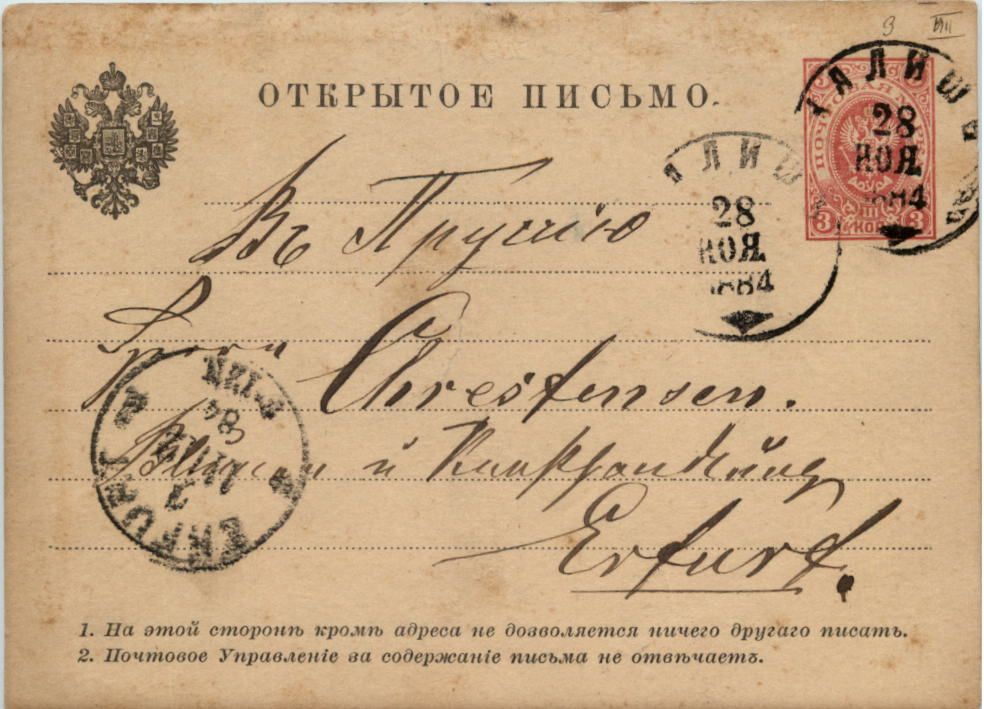 ОТКРЫТОЕ ПИСЬМО.
ПОЧТОВАЯ
3 КОП 3
28
НОЯ
1884
28
НОЯ
1884
Въ Пруссію
Chrestensen.
Erfurt.
ERFURT
84
1. На этой сторонѣ кромѣ адреса не дозволяется ничего другаго писать.
2. Почтовое Управленіе за содержаніе письма не отвѣчаетъ.